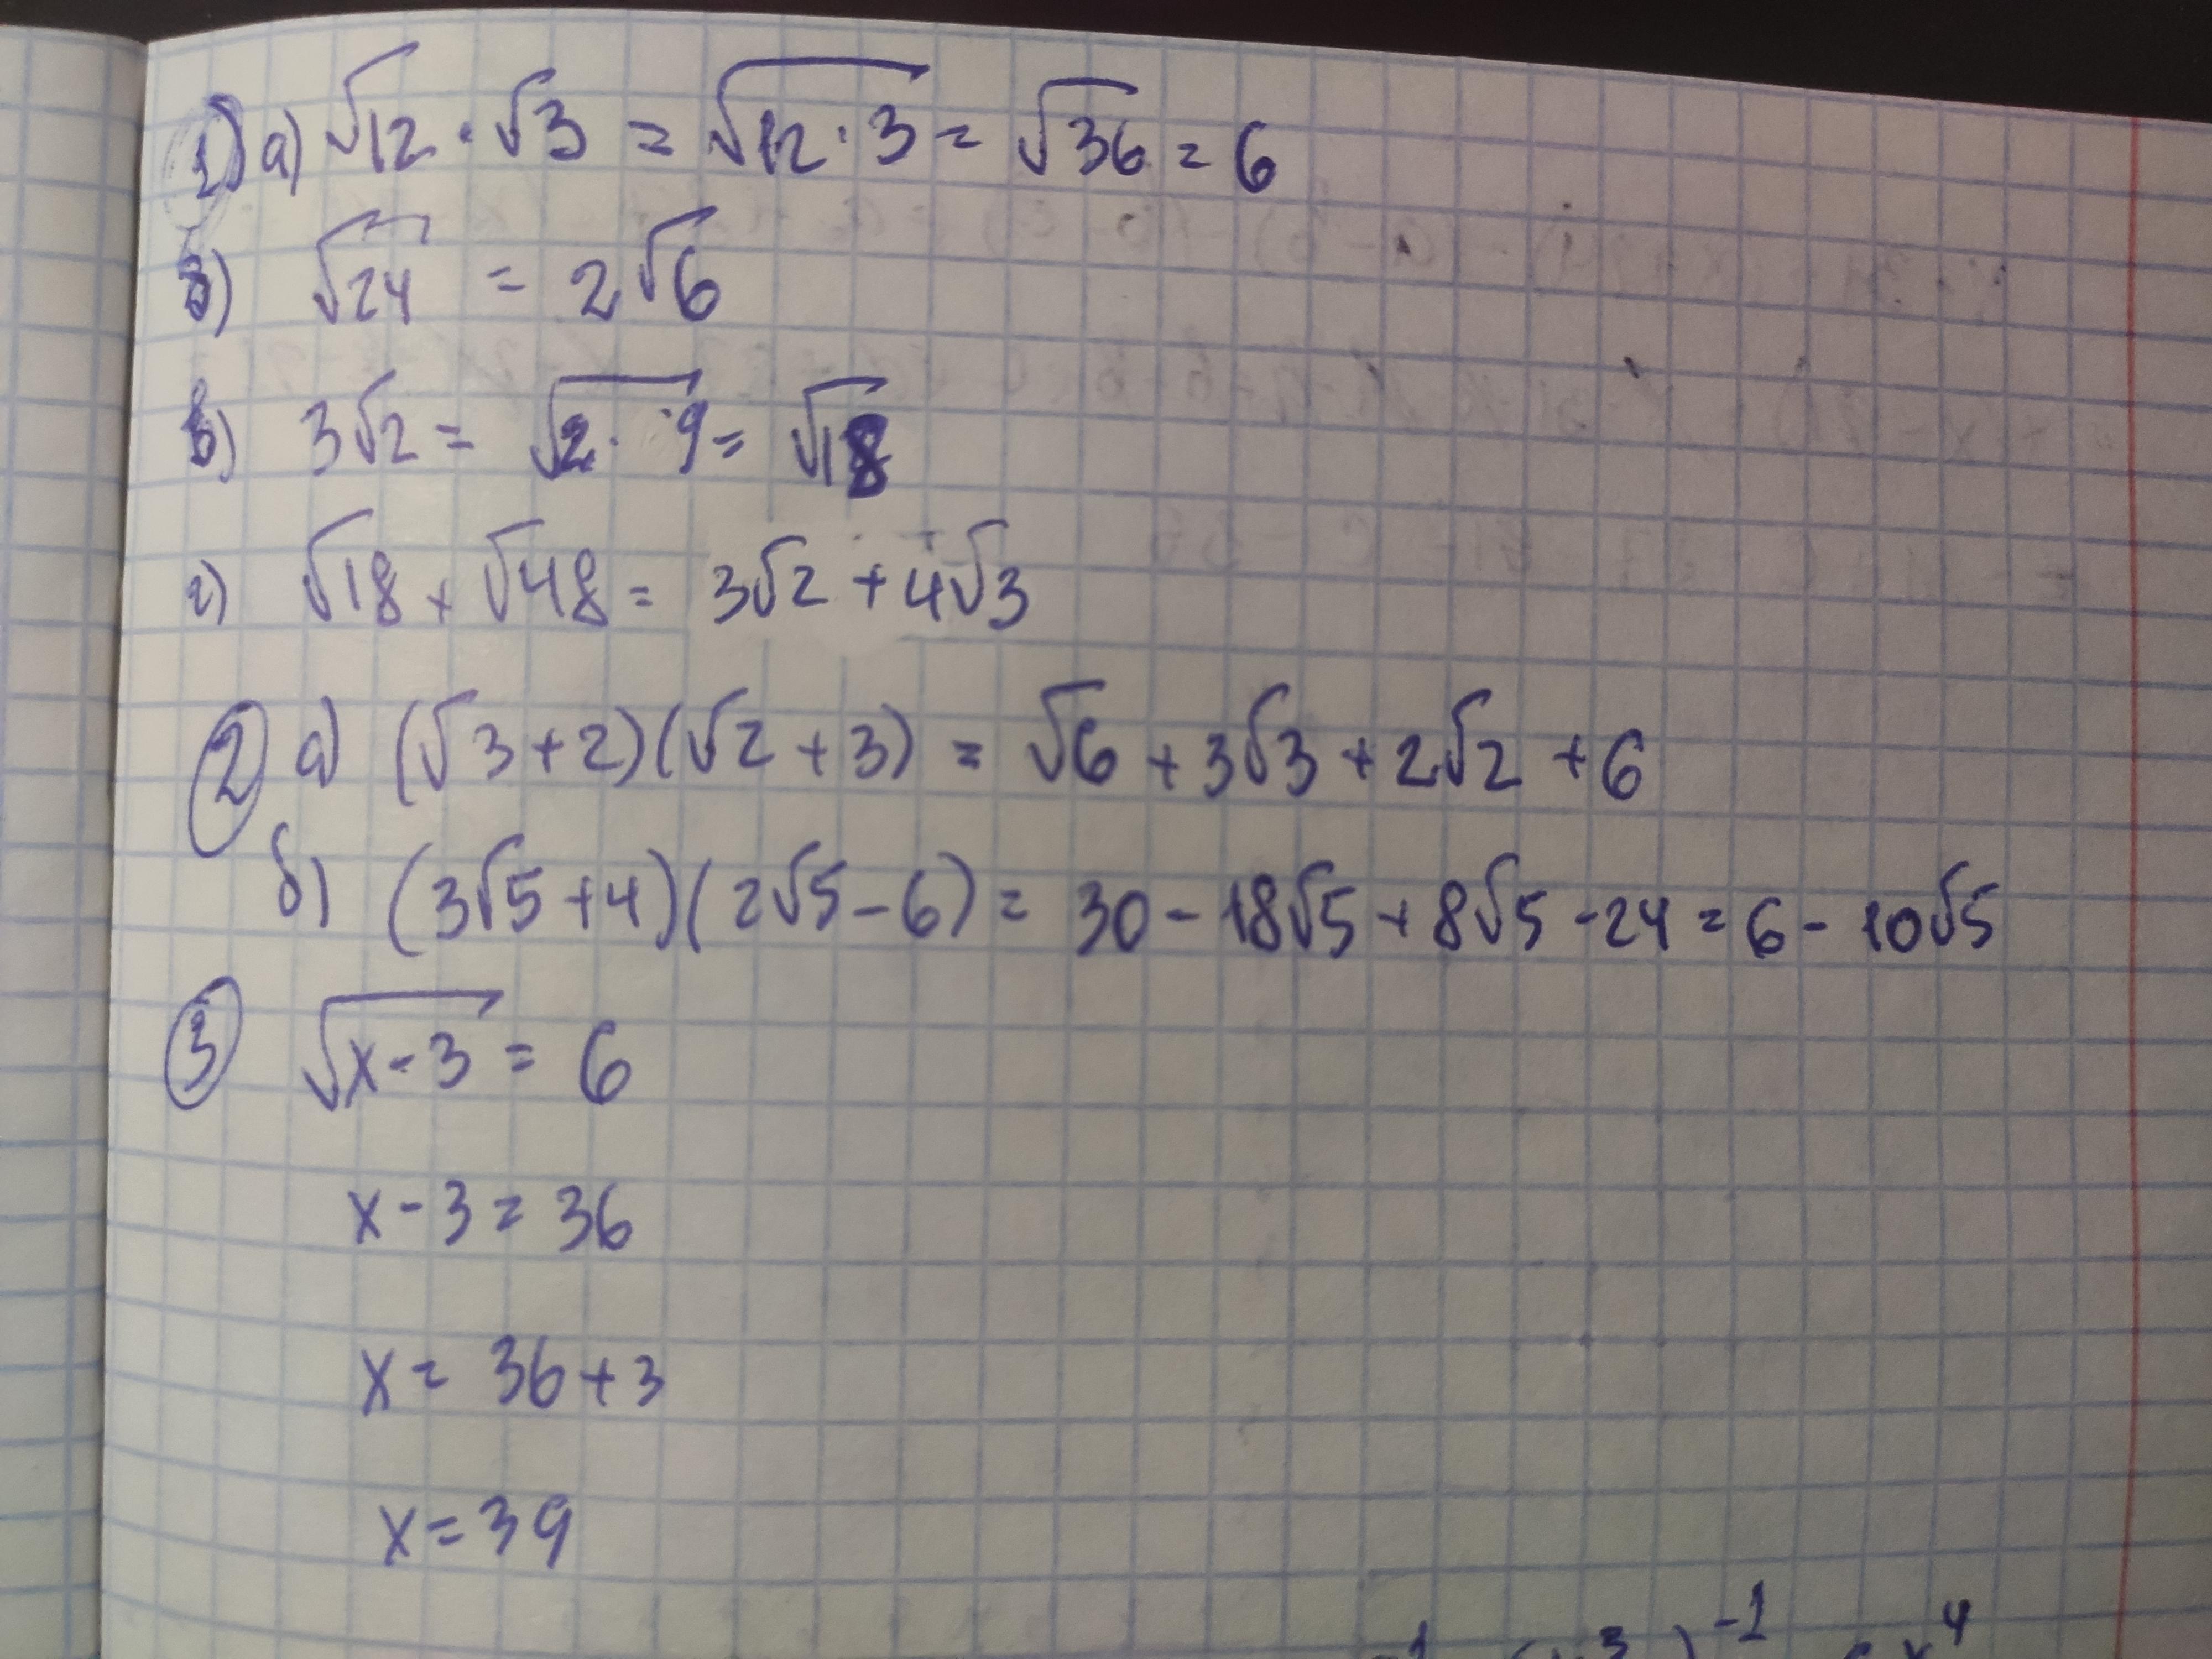 1) а) √12 · √3 = √12 · 3 = √36 = 6
б) √24 = 2√6
в) 3√2 = √2 · 9 = √18
г) √18 + √48 = 3√2 + 4√3
2 а) (√3 + 2)(√2 + 3) = √6 + 3√3 + 2√2 + 6
б) (3√5 + 4)(2√5 - 6) = 30 - 18√5 + 8√5 - 24 = 6 - 10√5
3 √x - 3 = 6
x - 3 = 36
x = 36 + 3
x = 39